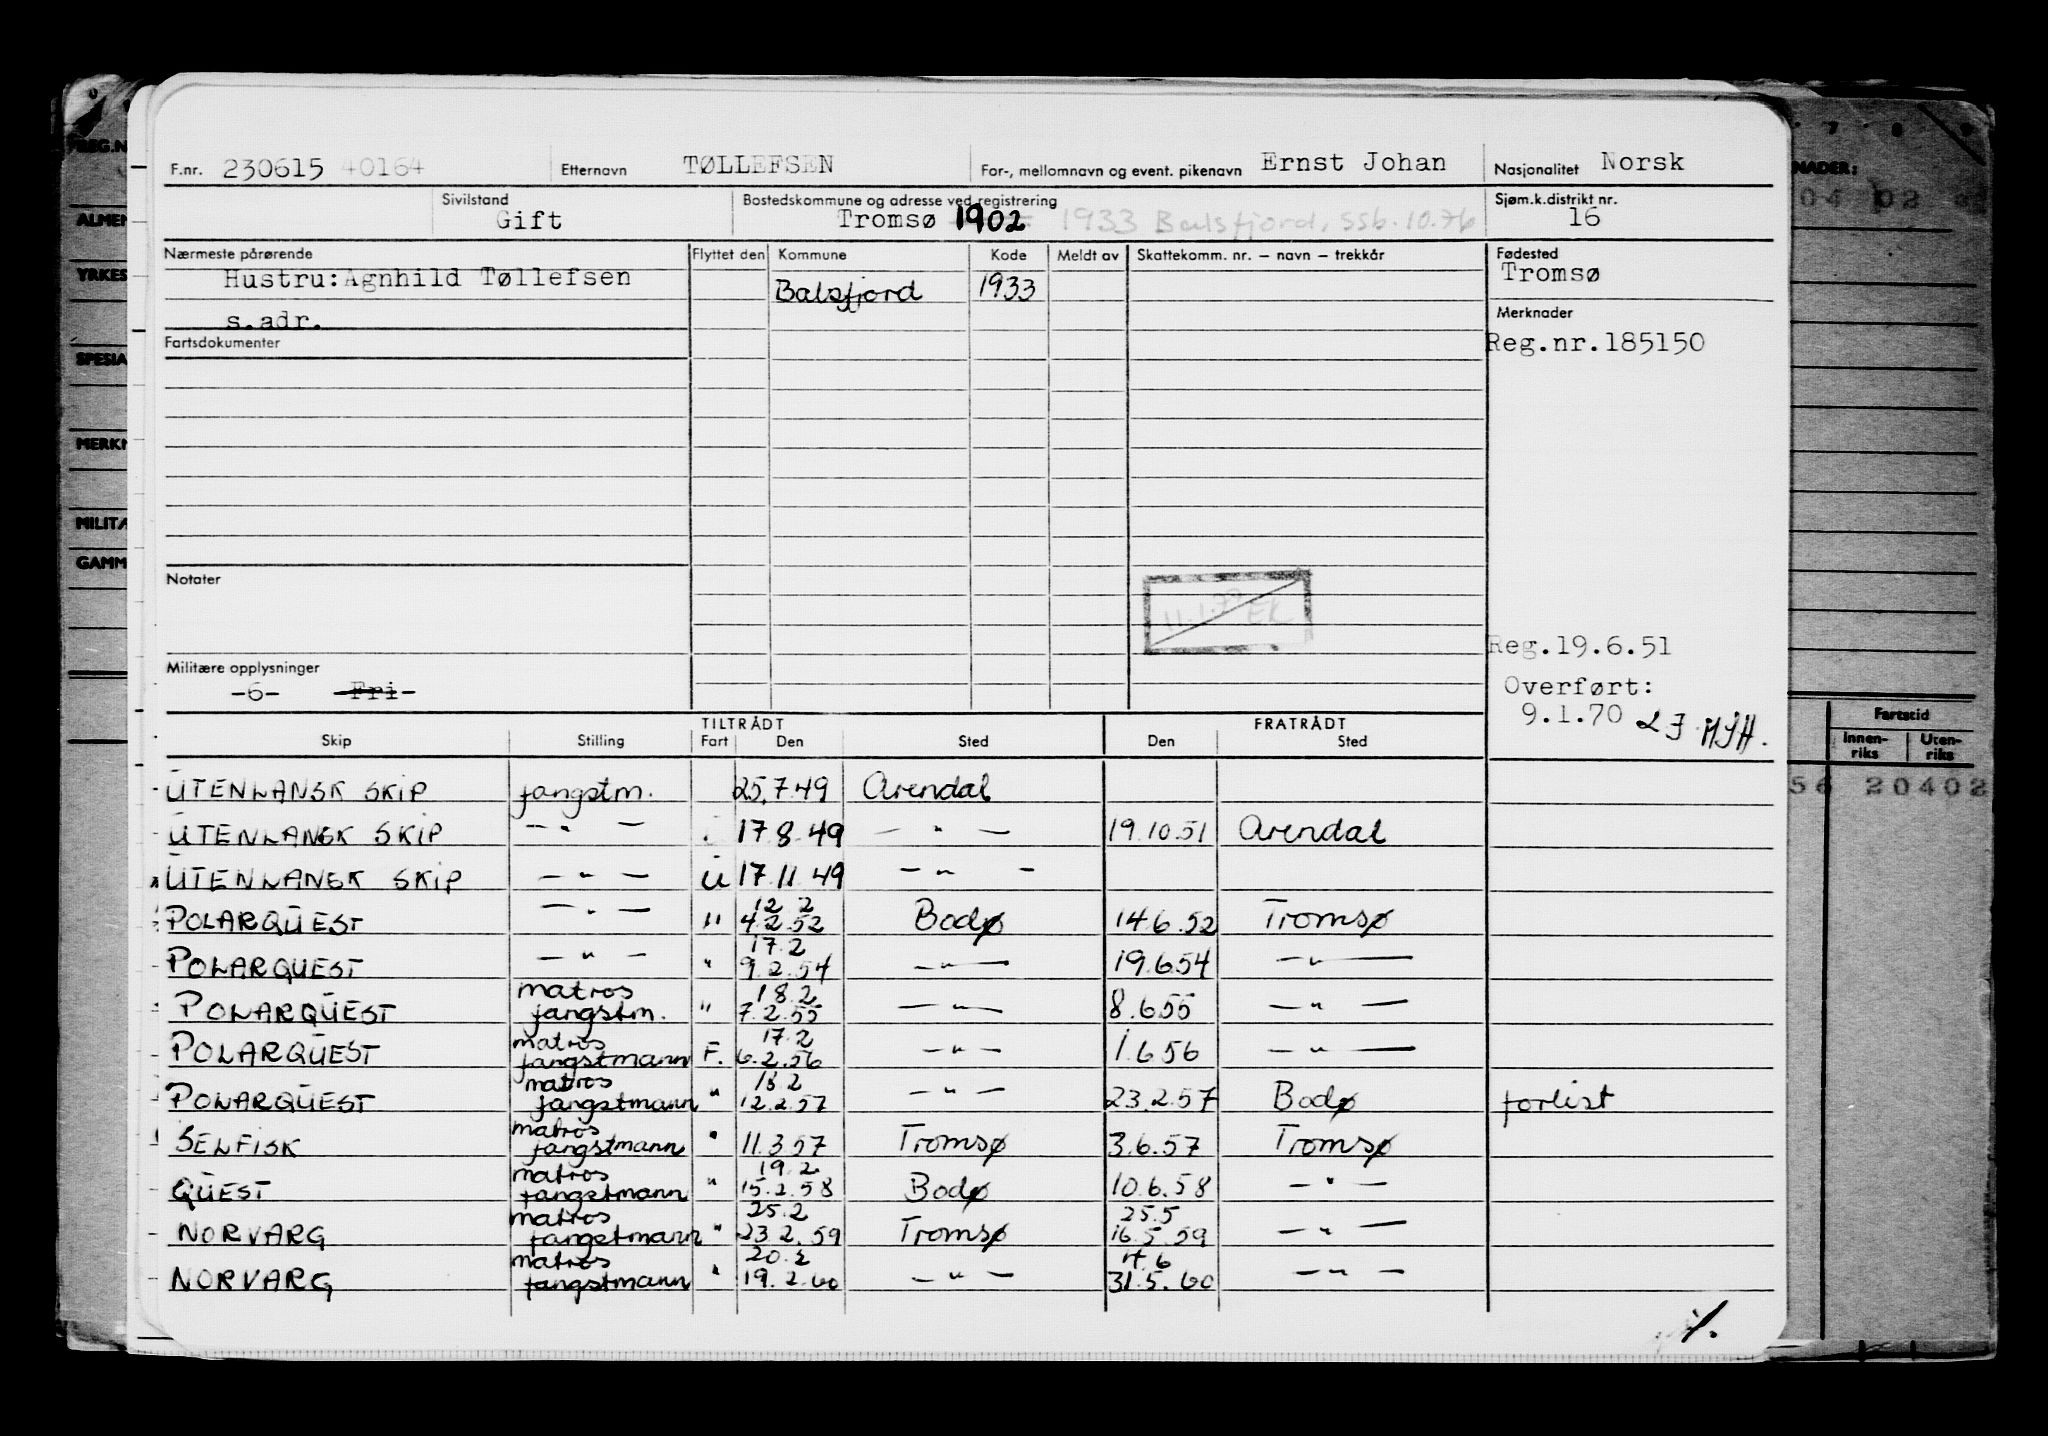 F.nr. 230615 40164 Etternavn TØLLEFSEN For-, mellomnavn og event. pikenavn Ernst Johan Nasjonalitet Norsk
Sivilstand Gift Bostedskommune og adresse ved registrering Tromsø 1902 1933 Balsfjord, ssb. 10.76 Sjøm.k.distrikt nr. 16
Nærmeste pårørende Flyttet den Kommune Kode Meldt av Skattekomm. nr. – navn – trekkår Fødested
Hustru: Agnhild Tøllefsen Balsfjord 1933 Tromsø
s.adr. Merknader
Fartsdokumenter Reg.nr.185150
Notater
Reg.19.6.51
Militære opplysninger
-6- -Fri- Overført:
9.1.70
TILTRÅDT FRATRÅDT
Skip Stilling Fart Den Sted Den Sted
UTENLANSK SKIP fangstm. 25.7.49 Arendal
UTENLANSK SKIP — " — 17 8 49 — " — 19.10.51 Arendal
UTENLANSK SKIP — " — U 17 11 49 — " —
12 2
POLARQUEST — " — " 4.2.52 Bodø 14.6.52 Tromsø
17.2
POLARQUEST — " — " 9.2.54 — " — 19.6.54 — " —
matros 18.2
POLARQUEST fangstm. " 7.2.55 — " — 8.6.55 — " —
matros 17.2
POLARQUEST fangstmann F. 6.2.56 — " — 1.6.56 — " —
matros 18 2
POLARQUEST fangstmann " 12.2.57 — " — 23.2.57 Bodø forlist
matros
SELFISK fangstmann " 11.3.57 Tromsø 3.6.57 Tromsø
matros 19.2
QUEST fangstmann " 15.2.58 Bodø 10.6.58 — " —
matros 25.2 25.5
NORVARG fangstmann " 23 2.59 Tromsø 16.5.59 — " —
matros 20.2 4.6
NORVARG fangstmann " 19.2.60 — " — 31.5.60 — " —
REG.N
ALMEN
YRKES
SPESIA
MERKN
MILITÆ
GAMM
7 8 9
NADER:
04 02
Fartstid
Innen-
riks
Uten-
riks
56 20402